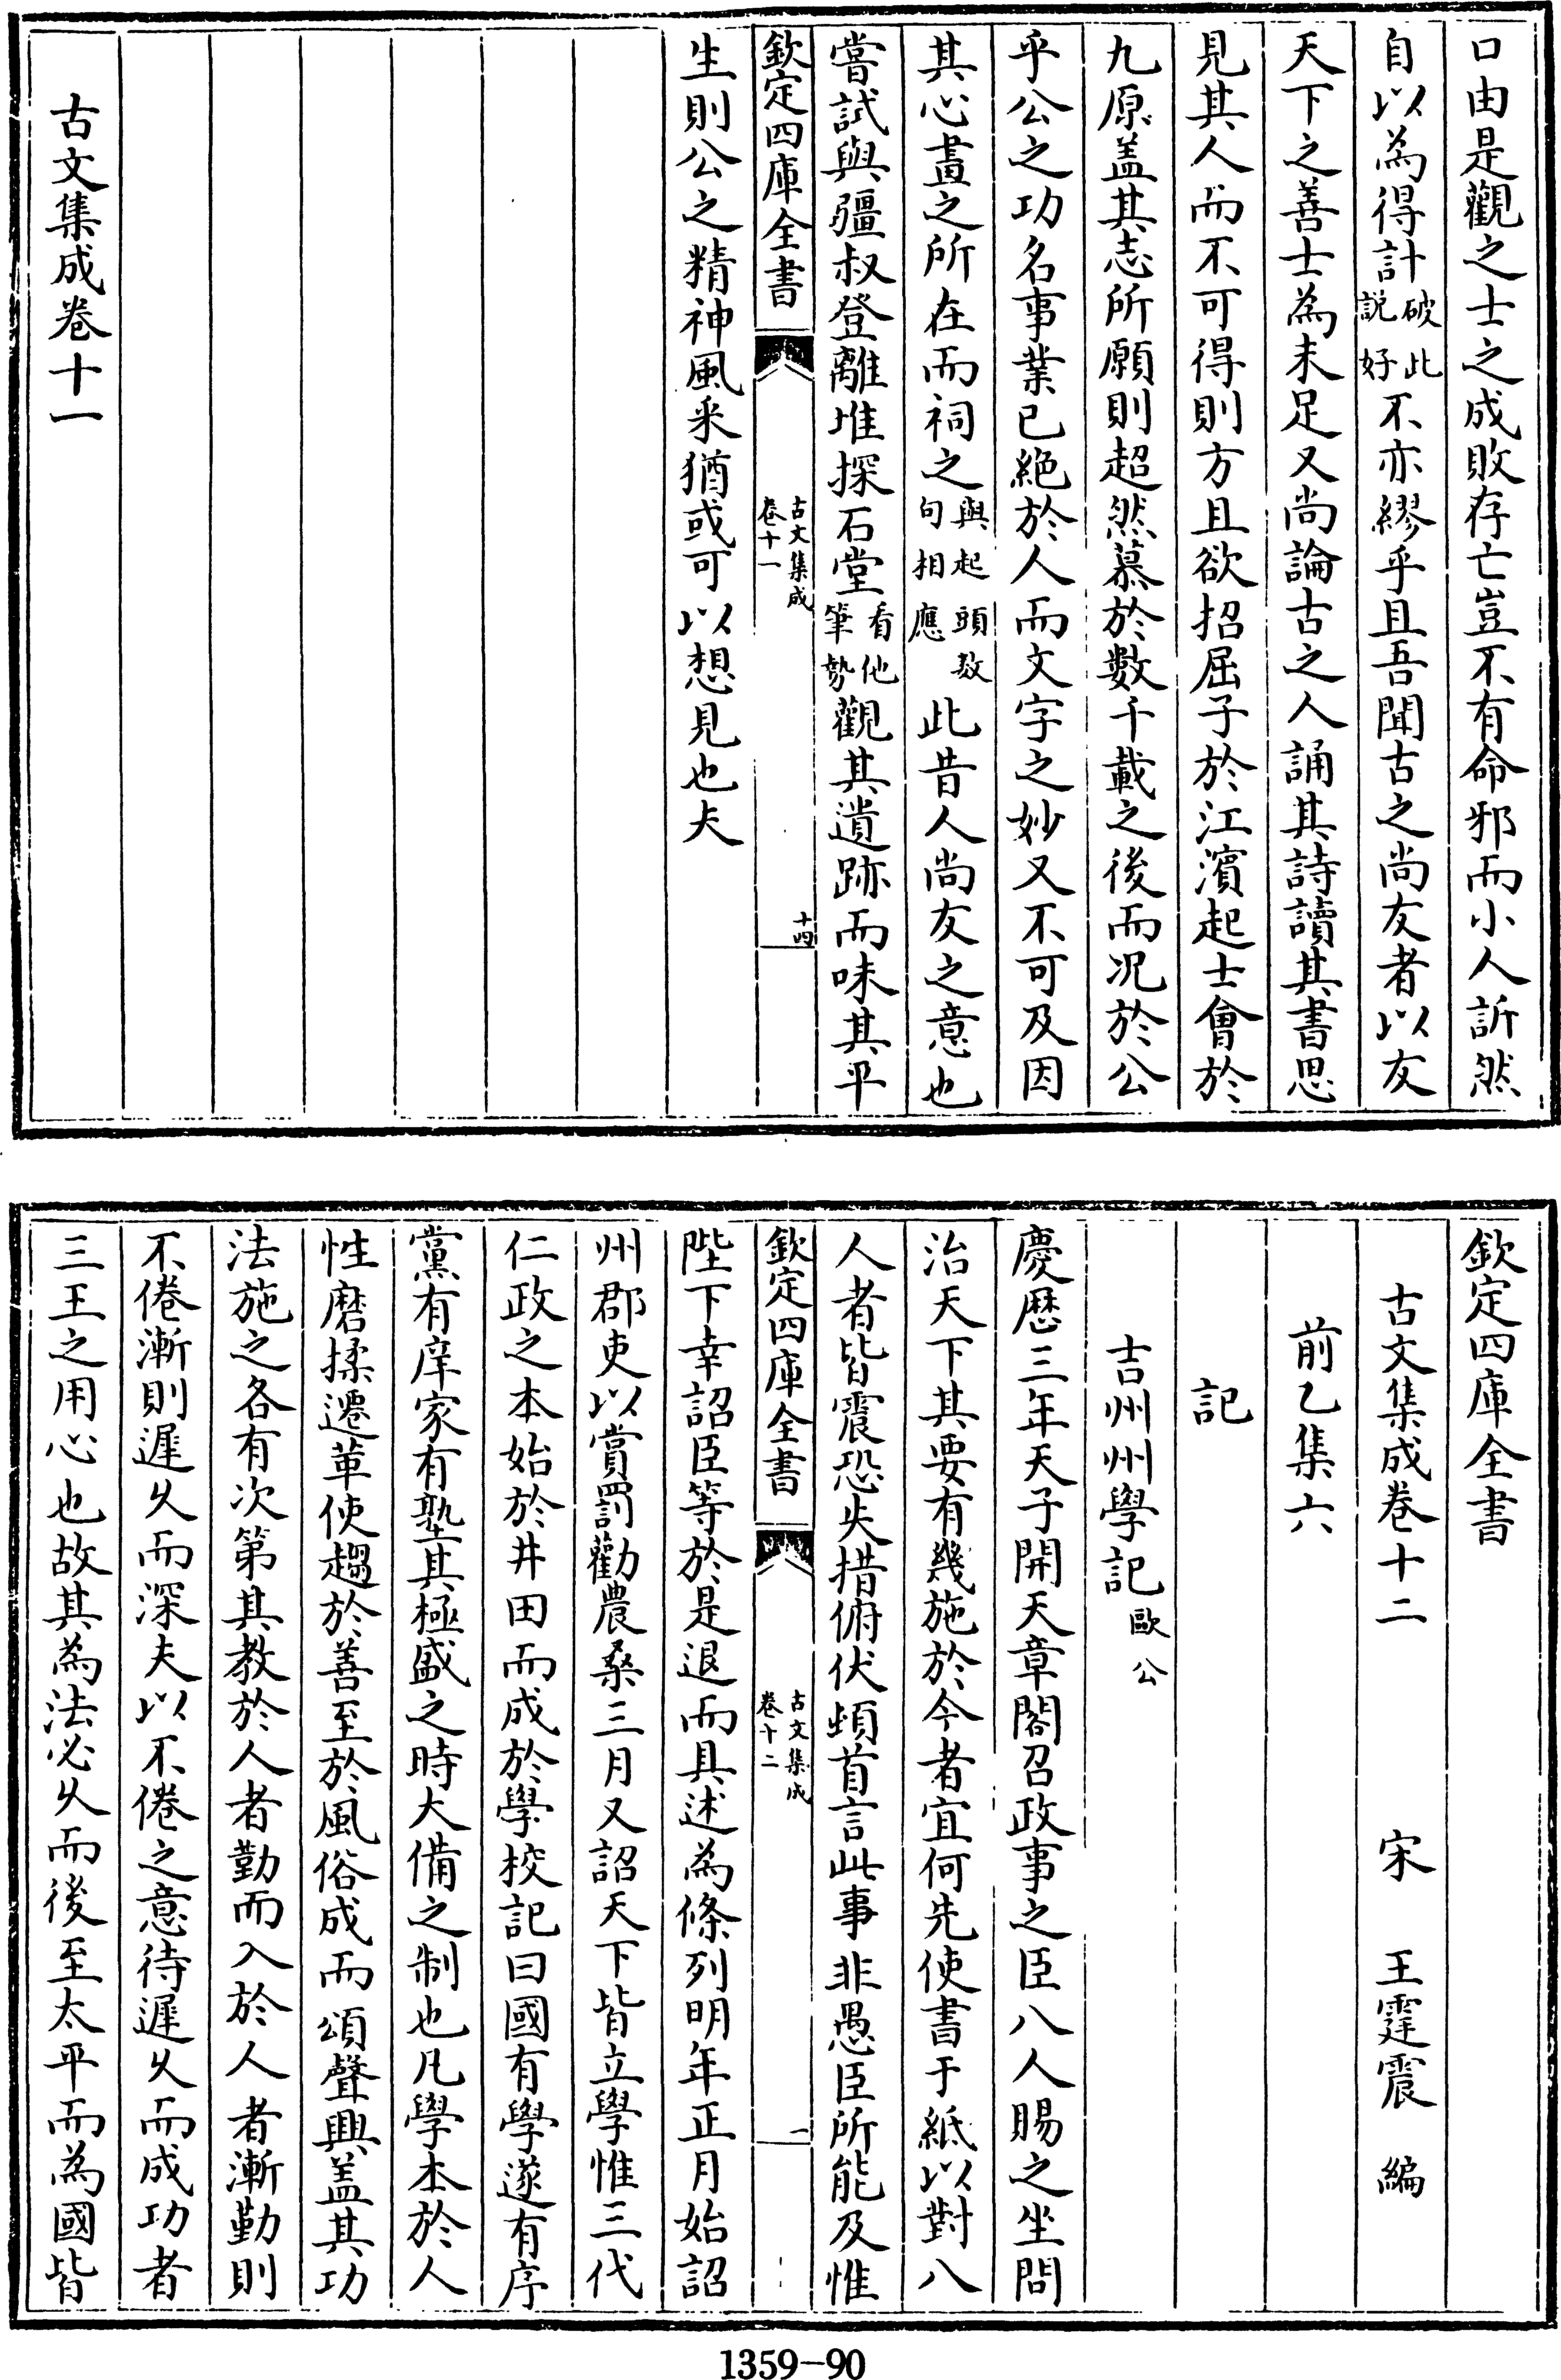 口由是觀之士之成敗存亡豈不有命邪而小人訢然
自以為得計破此說好不亦繆乎且吾聞古之尚友者以友
天下之善士為未足又尚論古之人誦其詩讀其書思
見其人而不可得則方且欲招屈子於江濱起士會於
九原盖其志所願則超然慕於數千載之後而况於公
乎公之功名事業已絕於人而文字之妙又不可及因
其心畫之所在而祠之與起頭数句相應此昔人尚友之意也
嘗試與彊叔登離堆探石堂看他筆勢觀其遺跡而味其平
欽定四庫全書
古文集成
卷十一
十四
生則公之精神風采猶或可以想見也夫
古文集成卷十一
欽定四庫全書
古文集成卷十二 宋 王霆震 編
前乙集六
記
吉州州學記歐公
慶厯三年天子開天章閣召政事之臣八人賜之坐問
治天下其要有幾施於今者宜何先使書于紙以對八
人者皆震恐失措俯伏頓首言此事非愚臣所能及惟
欽定四庫全書
古文集成
卷十二
一
陛下幸詔臣等於是退而具述為條列明年正月始詔
州郡吏以賞罰勸農桑三月又詔天下皆立學惟三代
仁政之本始於井田而成於學校記曰國有學遂有序
黨有庠家有塾其極盛之時大備之制也凡學本於人
性磨揉遷革使趨於善至於風俗成而頌聲興盖其功
法施之各有次第其教於人者勤而入於人者漸勤則
不倦漸則遲久而深夫以不倦之意待遲久而成功者
三王之用心也故其為法必久而後至太平而為國皆
1359-90